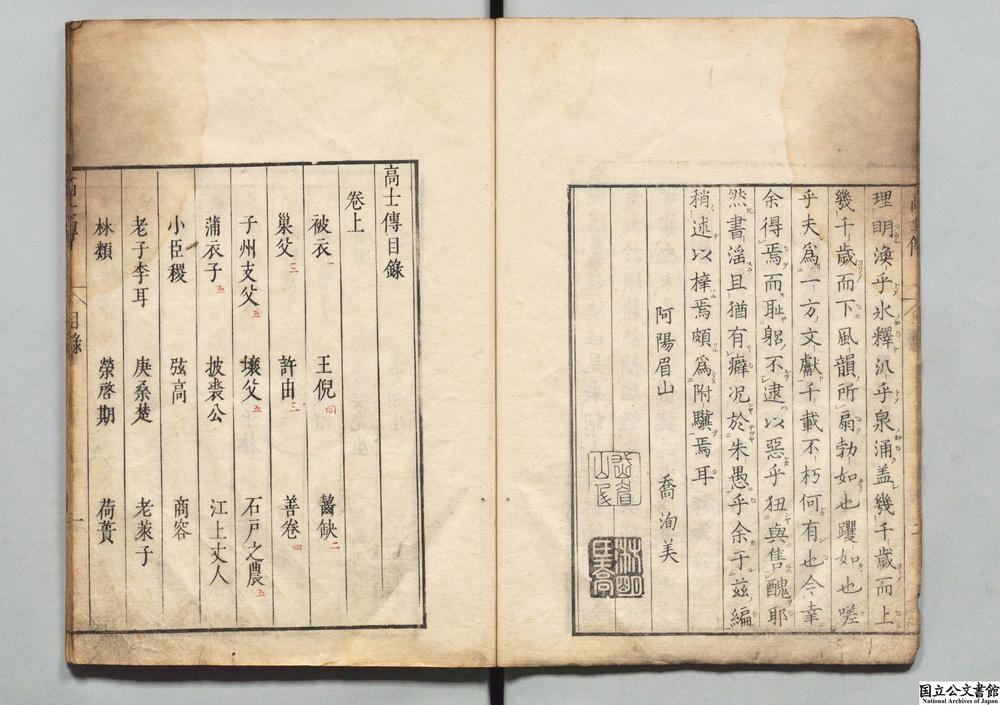 理明渙乎氷釋汎乎泉涌盖幾千歲而上
幾千歲而下風韻所扇勃如也躩如也嗟
乎夫爲一方文獻千載不朽何有也今幸
余得焉而耻躬不逮以惡乎狃與售醜耶
然書滛且猶有癖况於朱愚乎余于茲編
稍述以梓焉頗爲附驥焉耳
阿陽眉山 喬洵美
高士傳目錄
卷上
被衣一 王倪同 齧缺二
巢父三 許由三 善卷四
子州支父五 壤父五 石戸之農五
蒲衣子五 披裘公 江上丈人
小臣稷 弦高 商容
老子李耳 庚桑楚 老萊子
林類 榮啓期 荷蕢
目錄 一
国立公文書館
National Archives of Japan